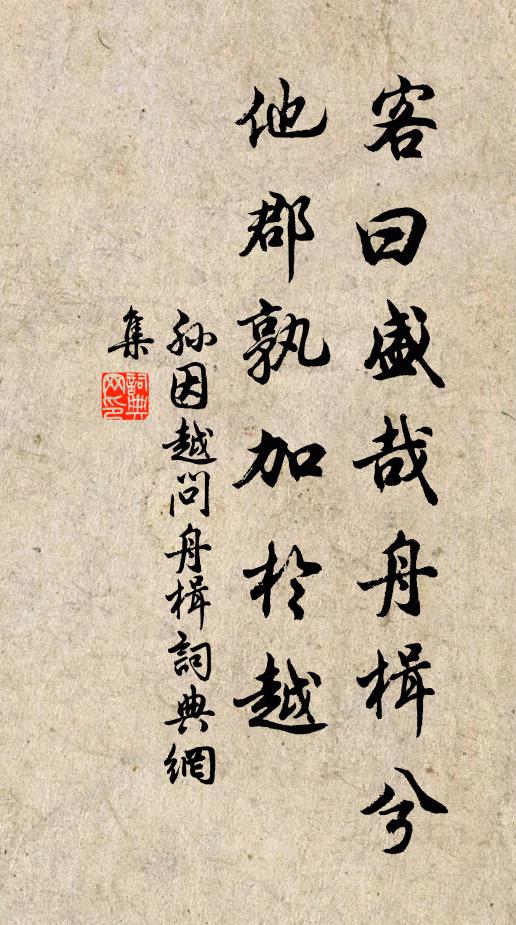 客曰盛哉舟楫兮
他郡孰加於越
孙因越問舟楫詞典網
集
詞典网印